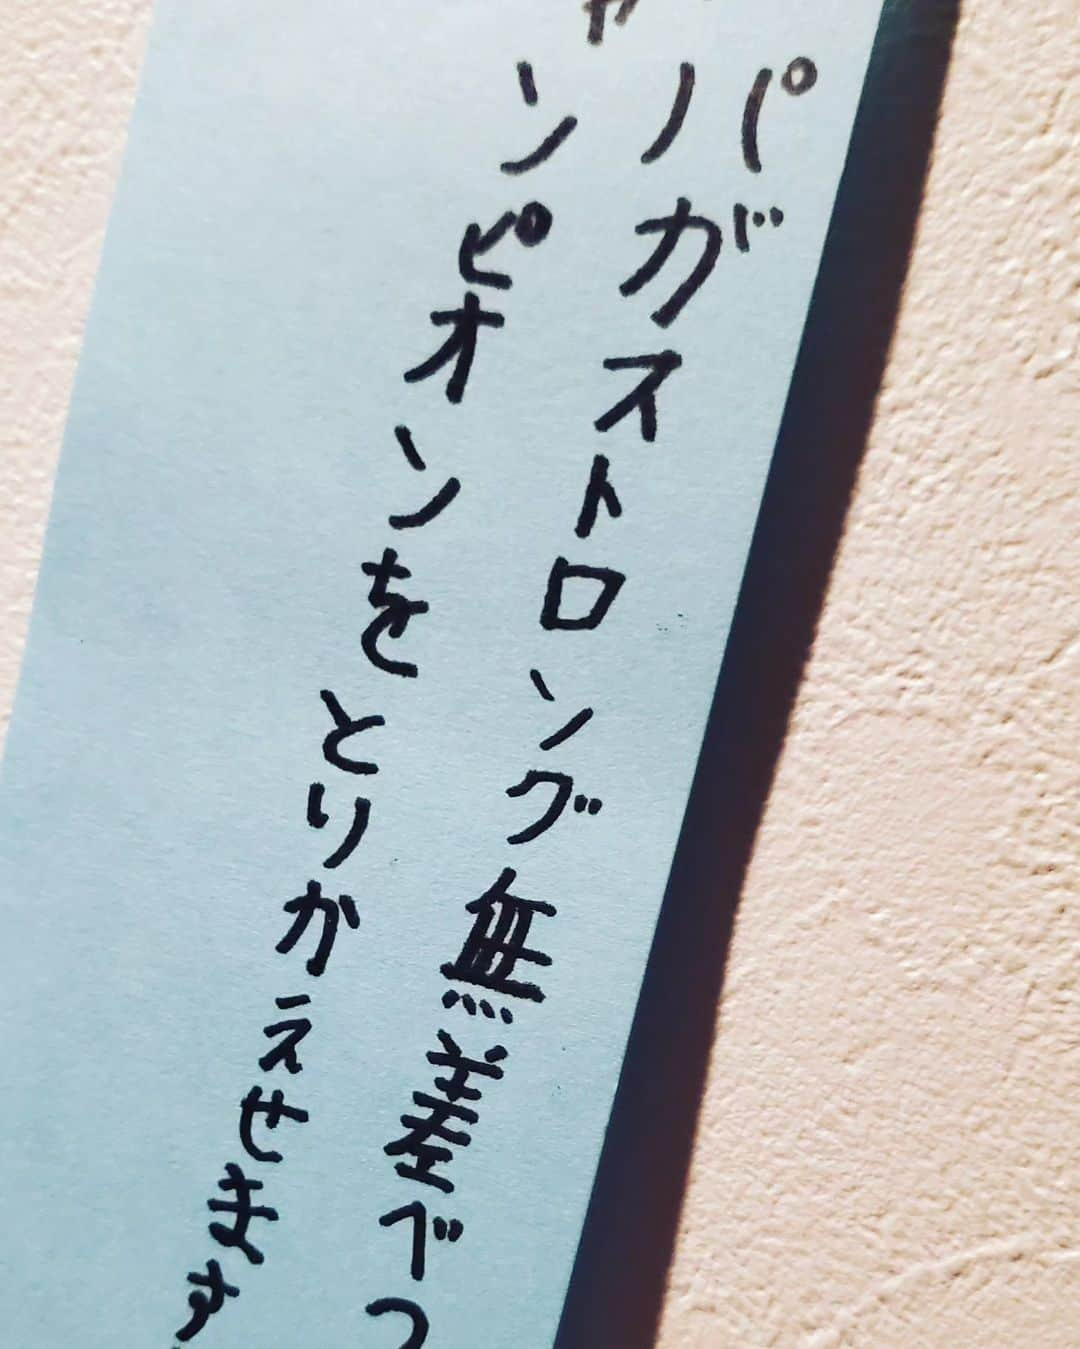 パがストロング無差べつ
ャンピオンをとりかえせます